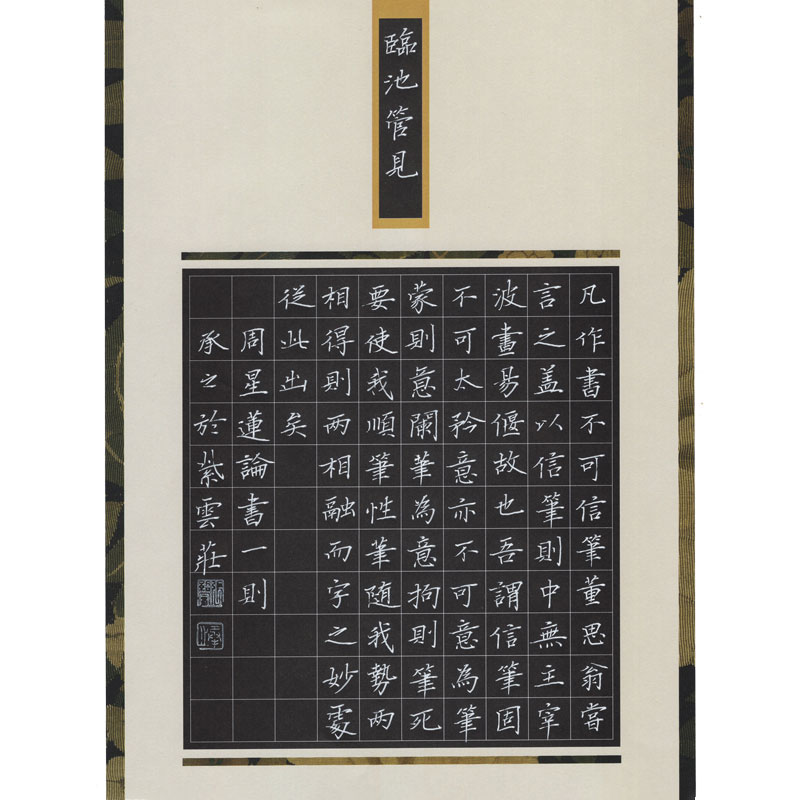 臨池管見
凡作書不可信筆董思翁嘗
言之盖以信筆則中無主宰
波畫易偃故也吾謂信筆固
不可太矜意亦不可意為筆
蒙則意闌筆為意拘則筆死
要使我順筆性筆随我勢两
相得則两相融而字之妙處
從此出矣
周星蓮論書一則
承之於紫雲莊